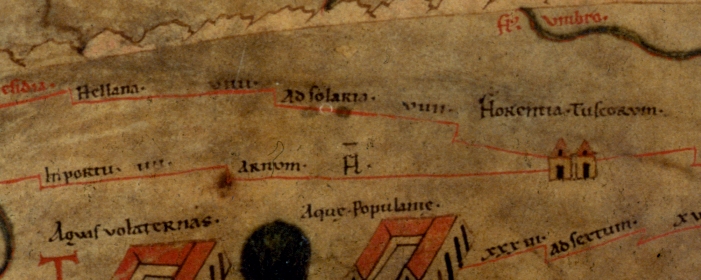 fl. Umbro.
Hellana. VIIII.
Ad solaria. VIIII.
Florentia Tuscorum.
In portu. IIII.
Arnum.
Aquas volaternas.
Aque Populanie.
XXXIII.
Ad sextum.
XV